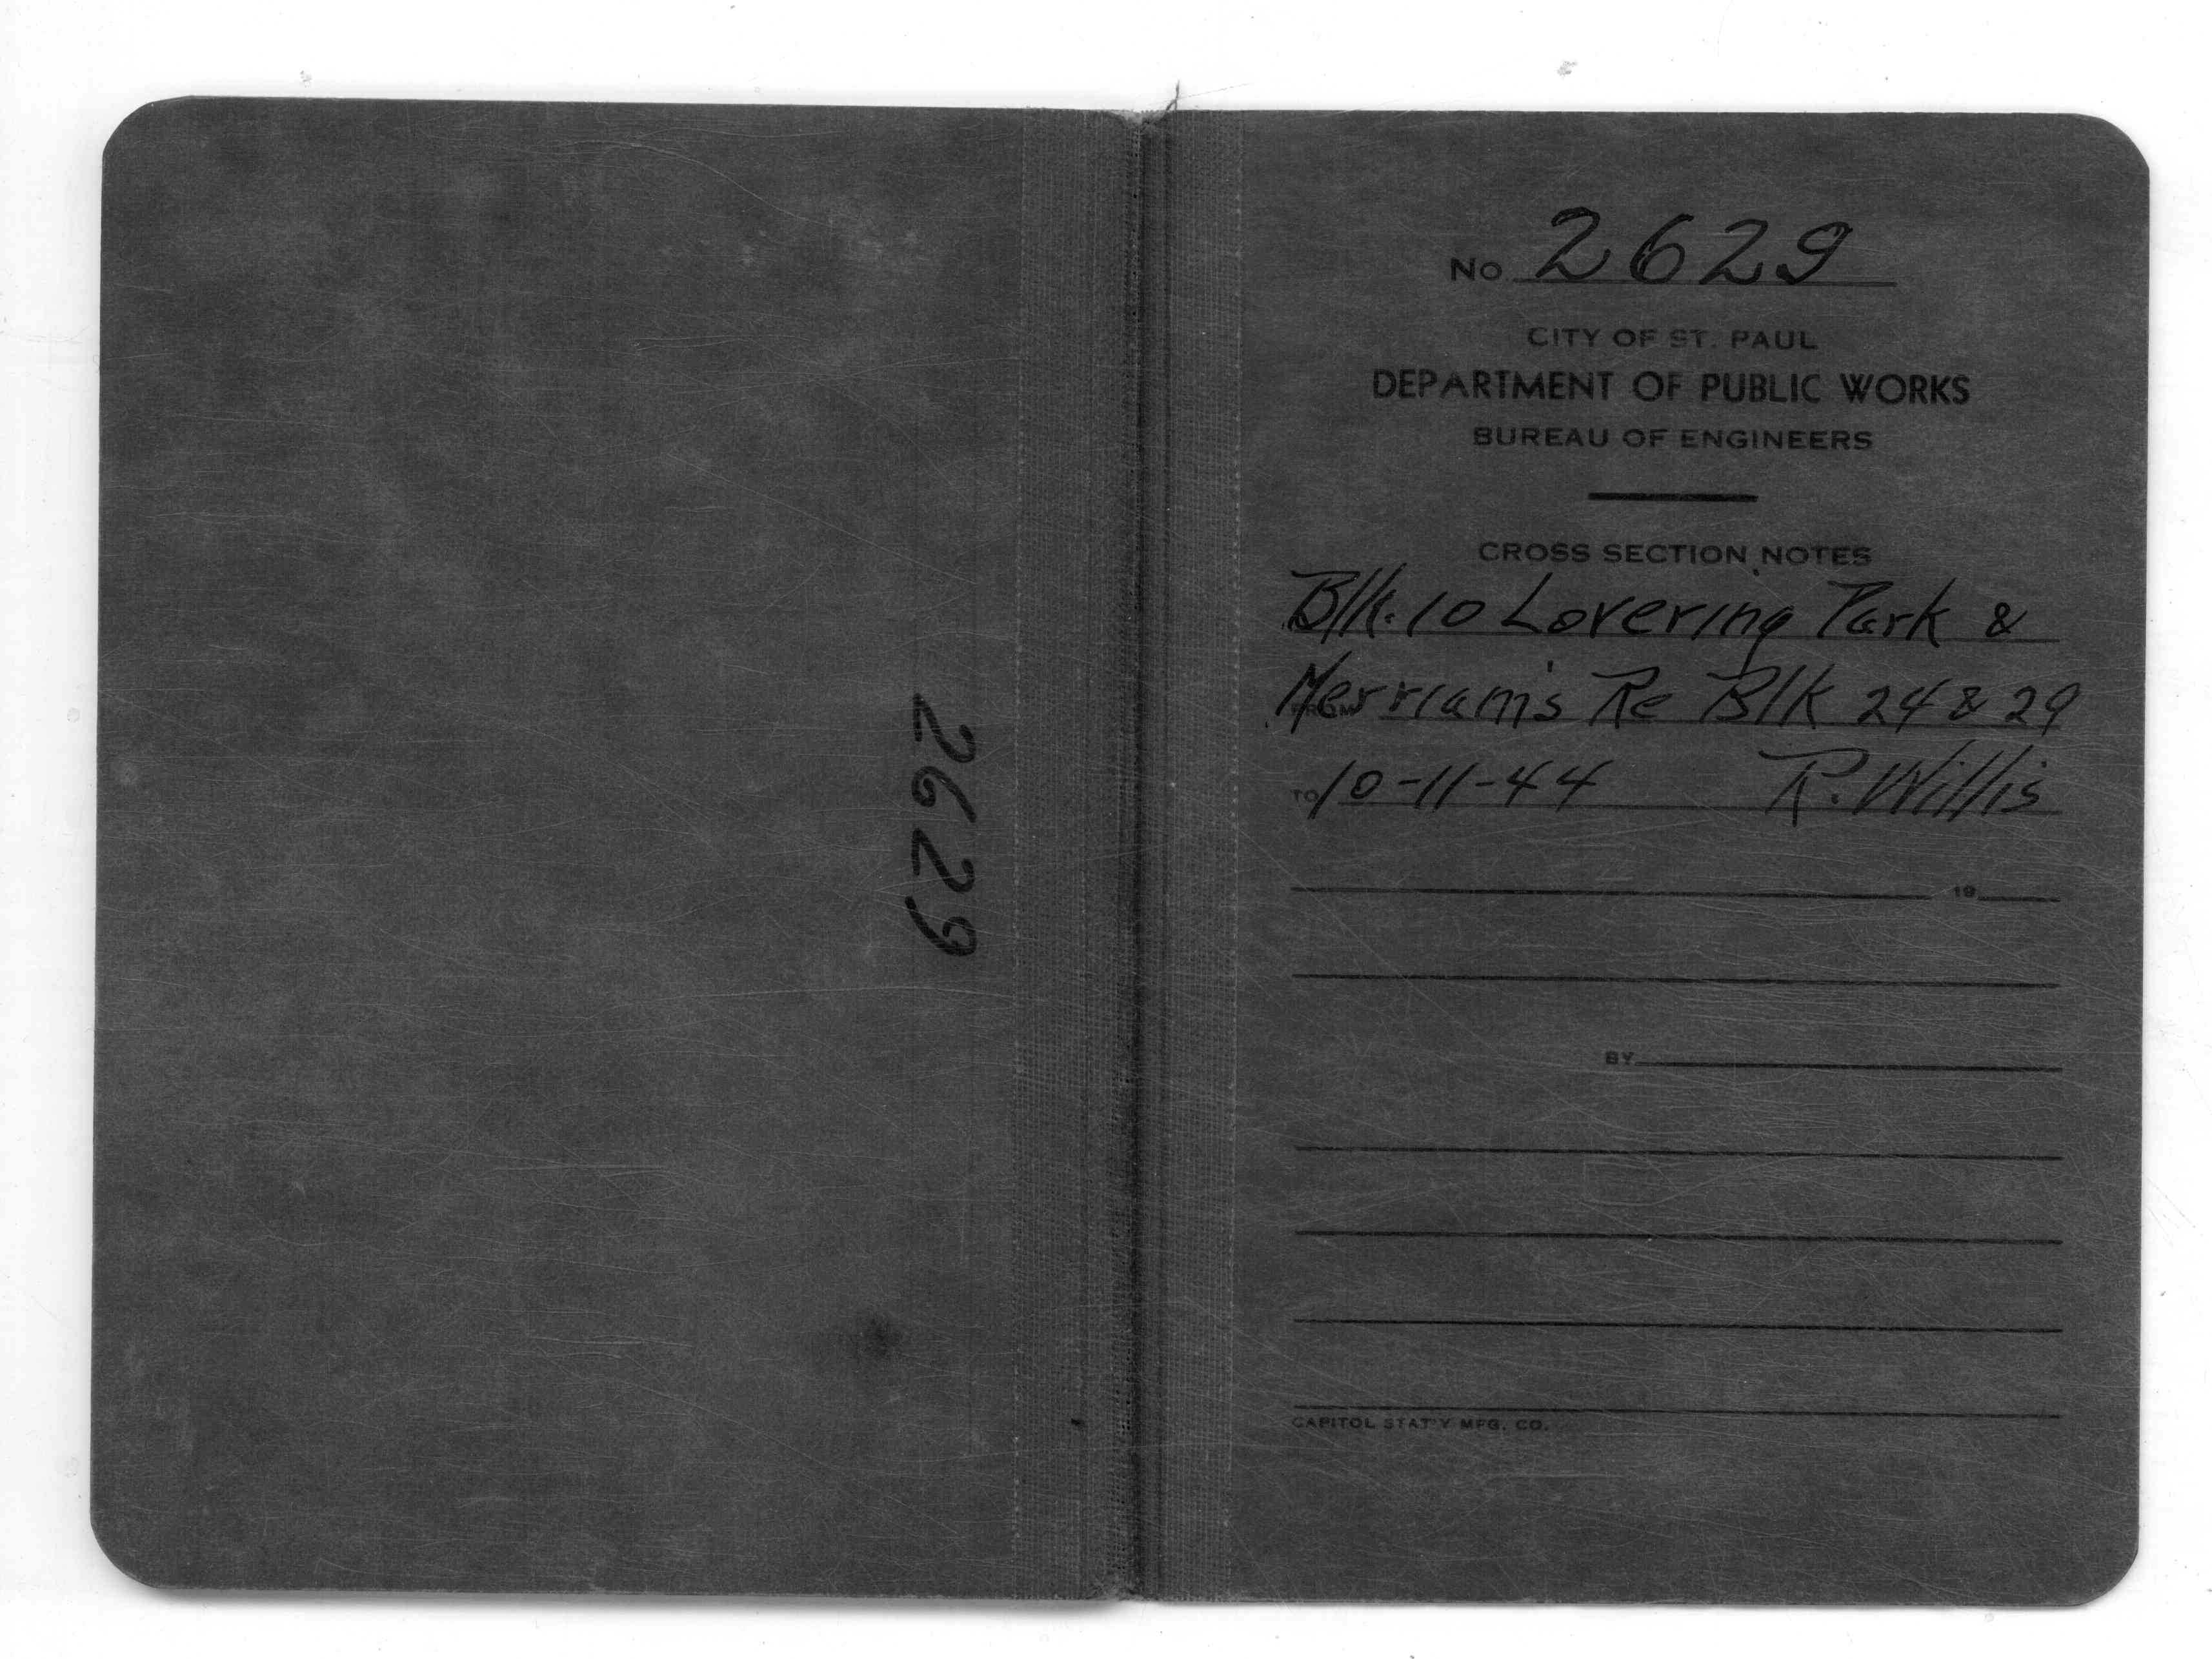 2629
No. 2629
CITY OF ST. PAUL
DEPARTMENT OF PUBLIC WORKS
BUREAU OF ENGINEERS
CROSS SECTION NOTES
Blk. 10 Lovering Park &
FROM Merriam's Re Blk 24 & 29
TO 10-11-44 R. Willis
19
BY
CAPITOL STAT'Y MFG. CO.